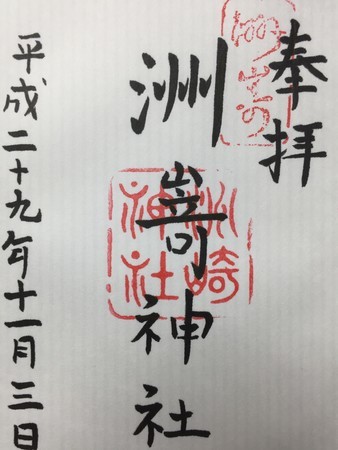 奉拝
洲嵜神社
洲崎神社
平成二十九年十一月三日